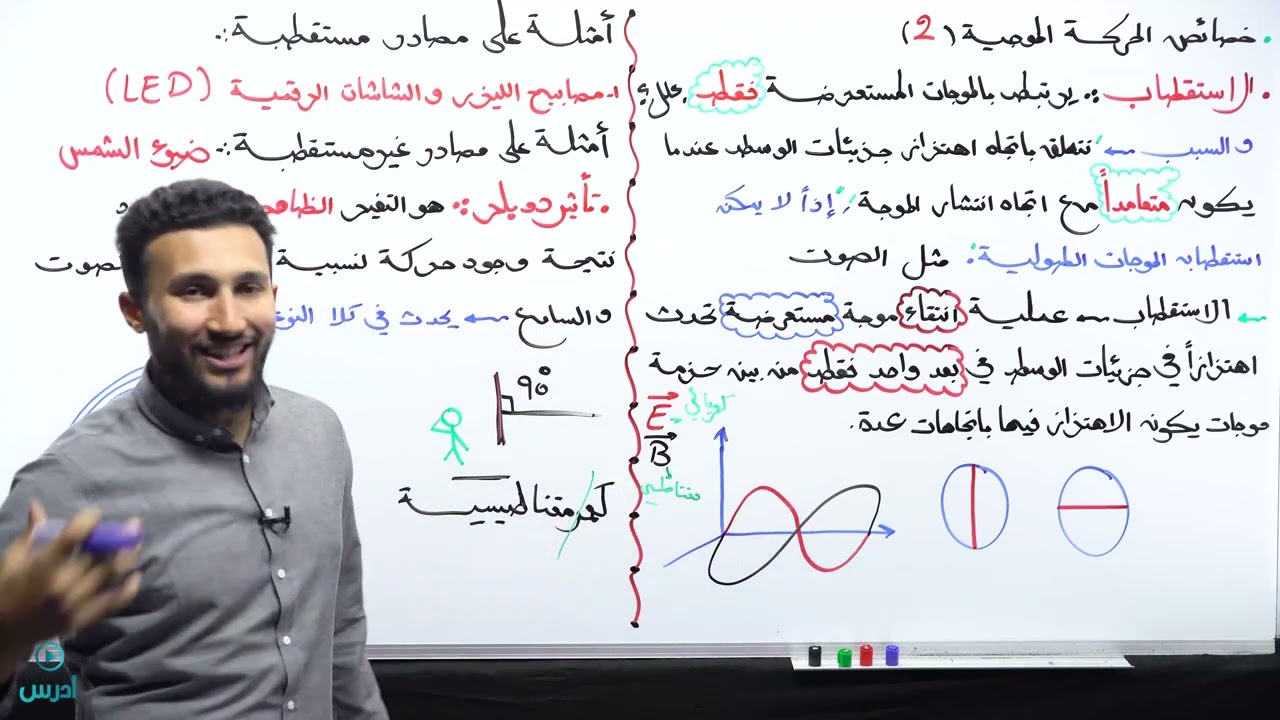 خصائص الحركة الموجية (2)
الاستقطاب :. يرتبط بالموجات المستعرضة فقط، عللي؟
و السبب ← تتعلق باتجاه اهتزاز جزيئات الوسط عندما
يكون متعامداً مع اتجاه انتشار الموجة، إذاً لا يمكن
استقطاب الموجات الطولية: مثل الصوت
الاستقطاب ← عملية انتقاء موجة مستعرضة تحدث
اهتزازاً في جزيئات الوسط في بعد واحد فقط من بين حزمة
موجات يكون الاهتزاز فيها باتجاهات عدة.
E كهربائي
B مغناطيسي
أمثلة على مصادر مستقطبة :.
1- مصابيح الليزر والشاشات الرقمية (LED)
أمثلة على مصادر غير مستقطبة :. ضوء الشمس
تأثير دوبلر :. هو التغير
نتيجة وجود حركة نسبية
والسامع ← يحدث في كلا
90°
كهرومغناطيسية
أدرس